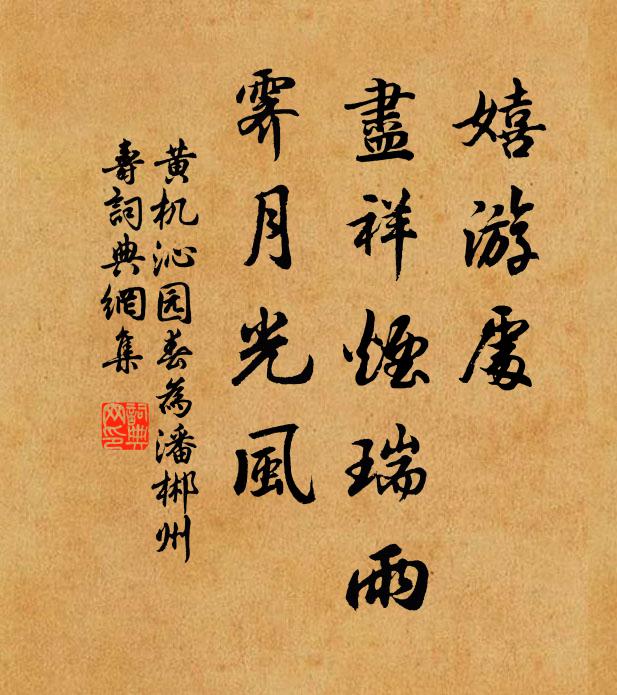 嬉游處
盡祥煙瑞雨
霽月光風
黄机沁园春為潘郴州
壽詞典網集
詞典網印